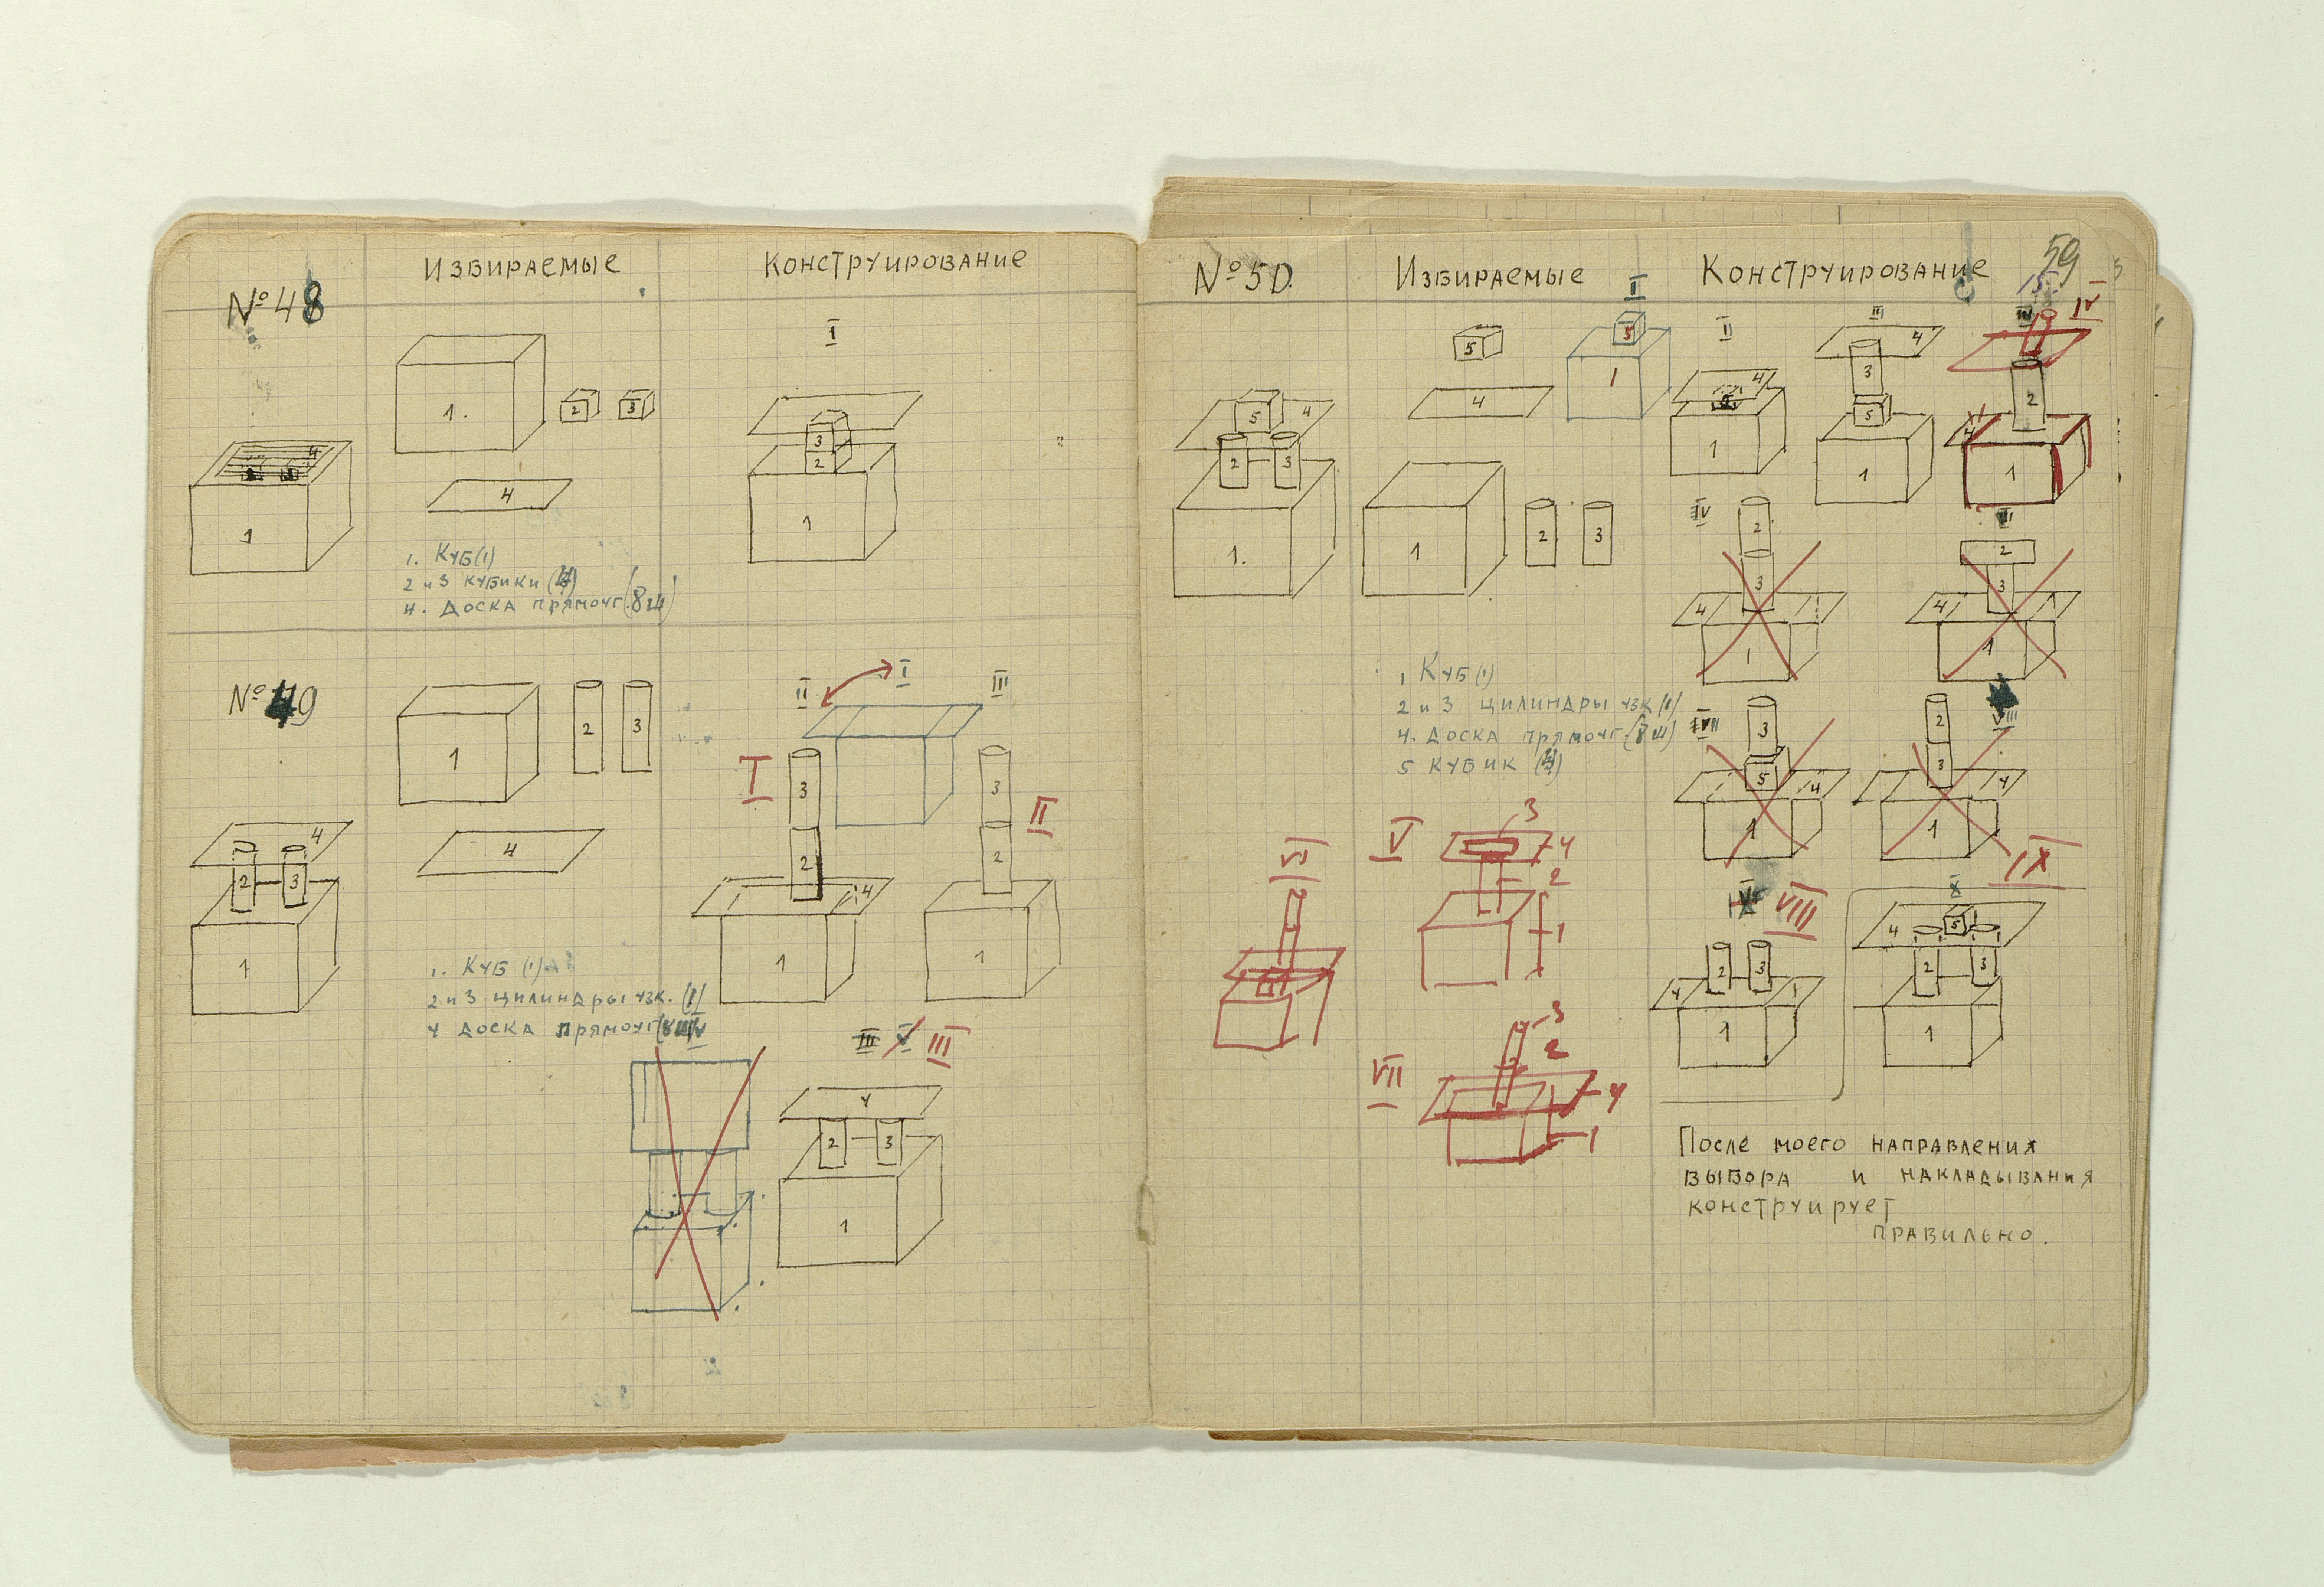 № 48
Избираемые
Конструирование
I
3
2
1
1.
2
3
4
4
1
1. Куб (1)
2 и 3 кубики
4. Доска прямоуг. (8ш)
№ 49
1
2
3
4
4
2
3
1
II
I
III
I
3
2
4
1
3
II
2
1
1. Куб (1)
2 и 3 цилиндры узк. (1)
4 доска прямоуг
III
V
III
4
2
3
1
№ 50.
Избираемые
Конструирование
59
5
4
2
3
1.
5
4
1
2
3
I
5
1
II
4
1
III
4
3
5
1
IV
2
4
1
IV
2
3
4
1
2
3
4
1
1 Куб (1)
2 и 3 цилиндры узк (1)
4. Доска прямоуг. (8ш)
5 кубик
VII
3
5
4
1
VIII
2
3
4
1
IX
VI
V
3
4
2
1
VII
3
2
4
1
VIII
2
3
4
1
X
4
5
2
3
1
После моего направления
выбора и накладывания
конструирует
правильно.